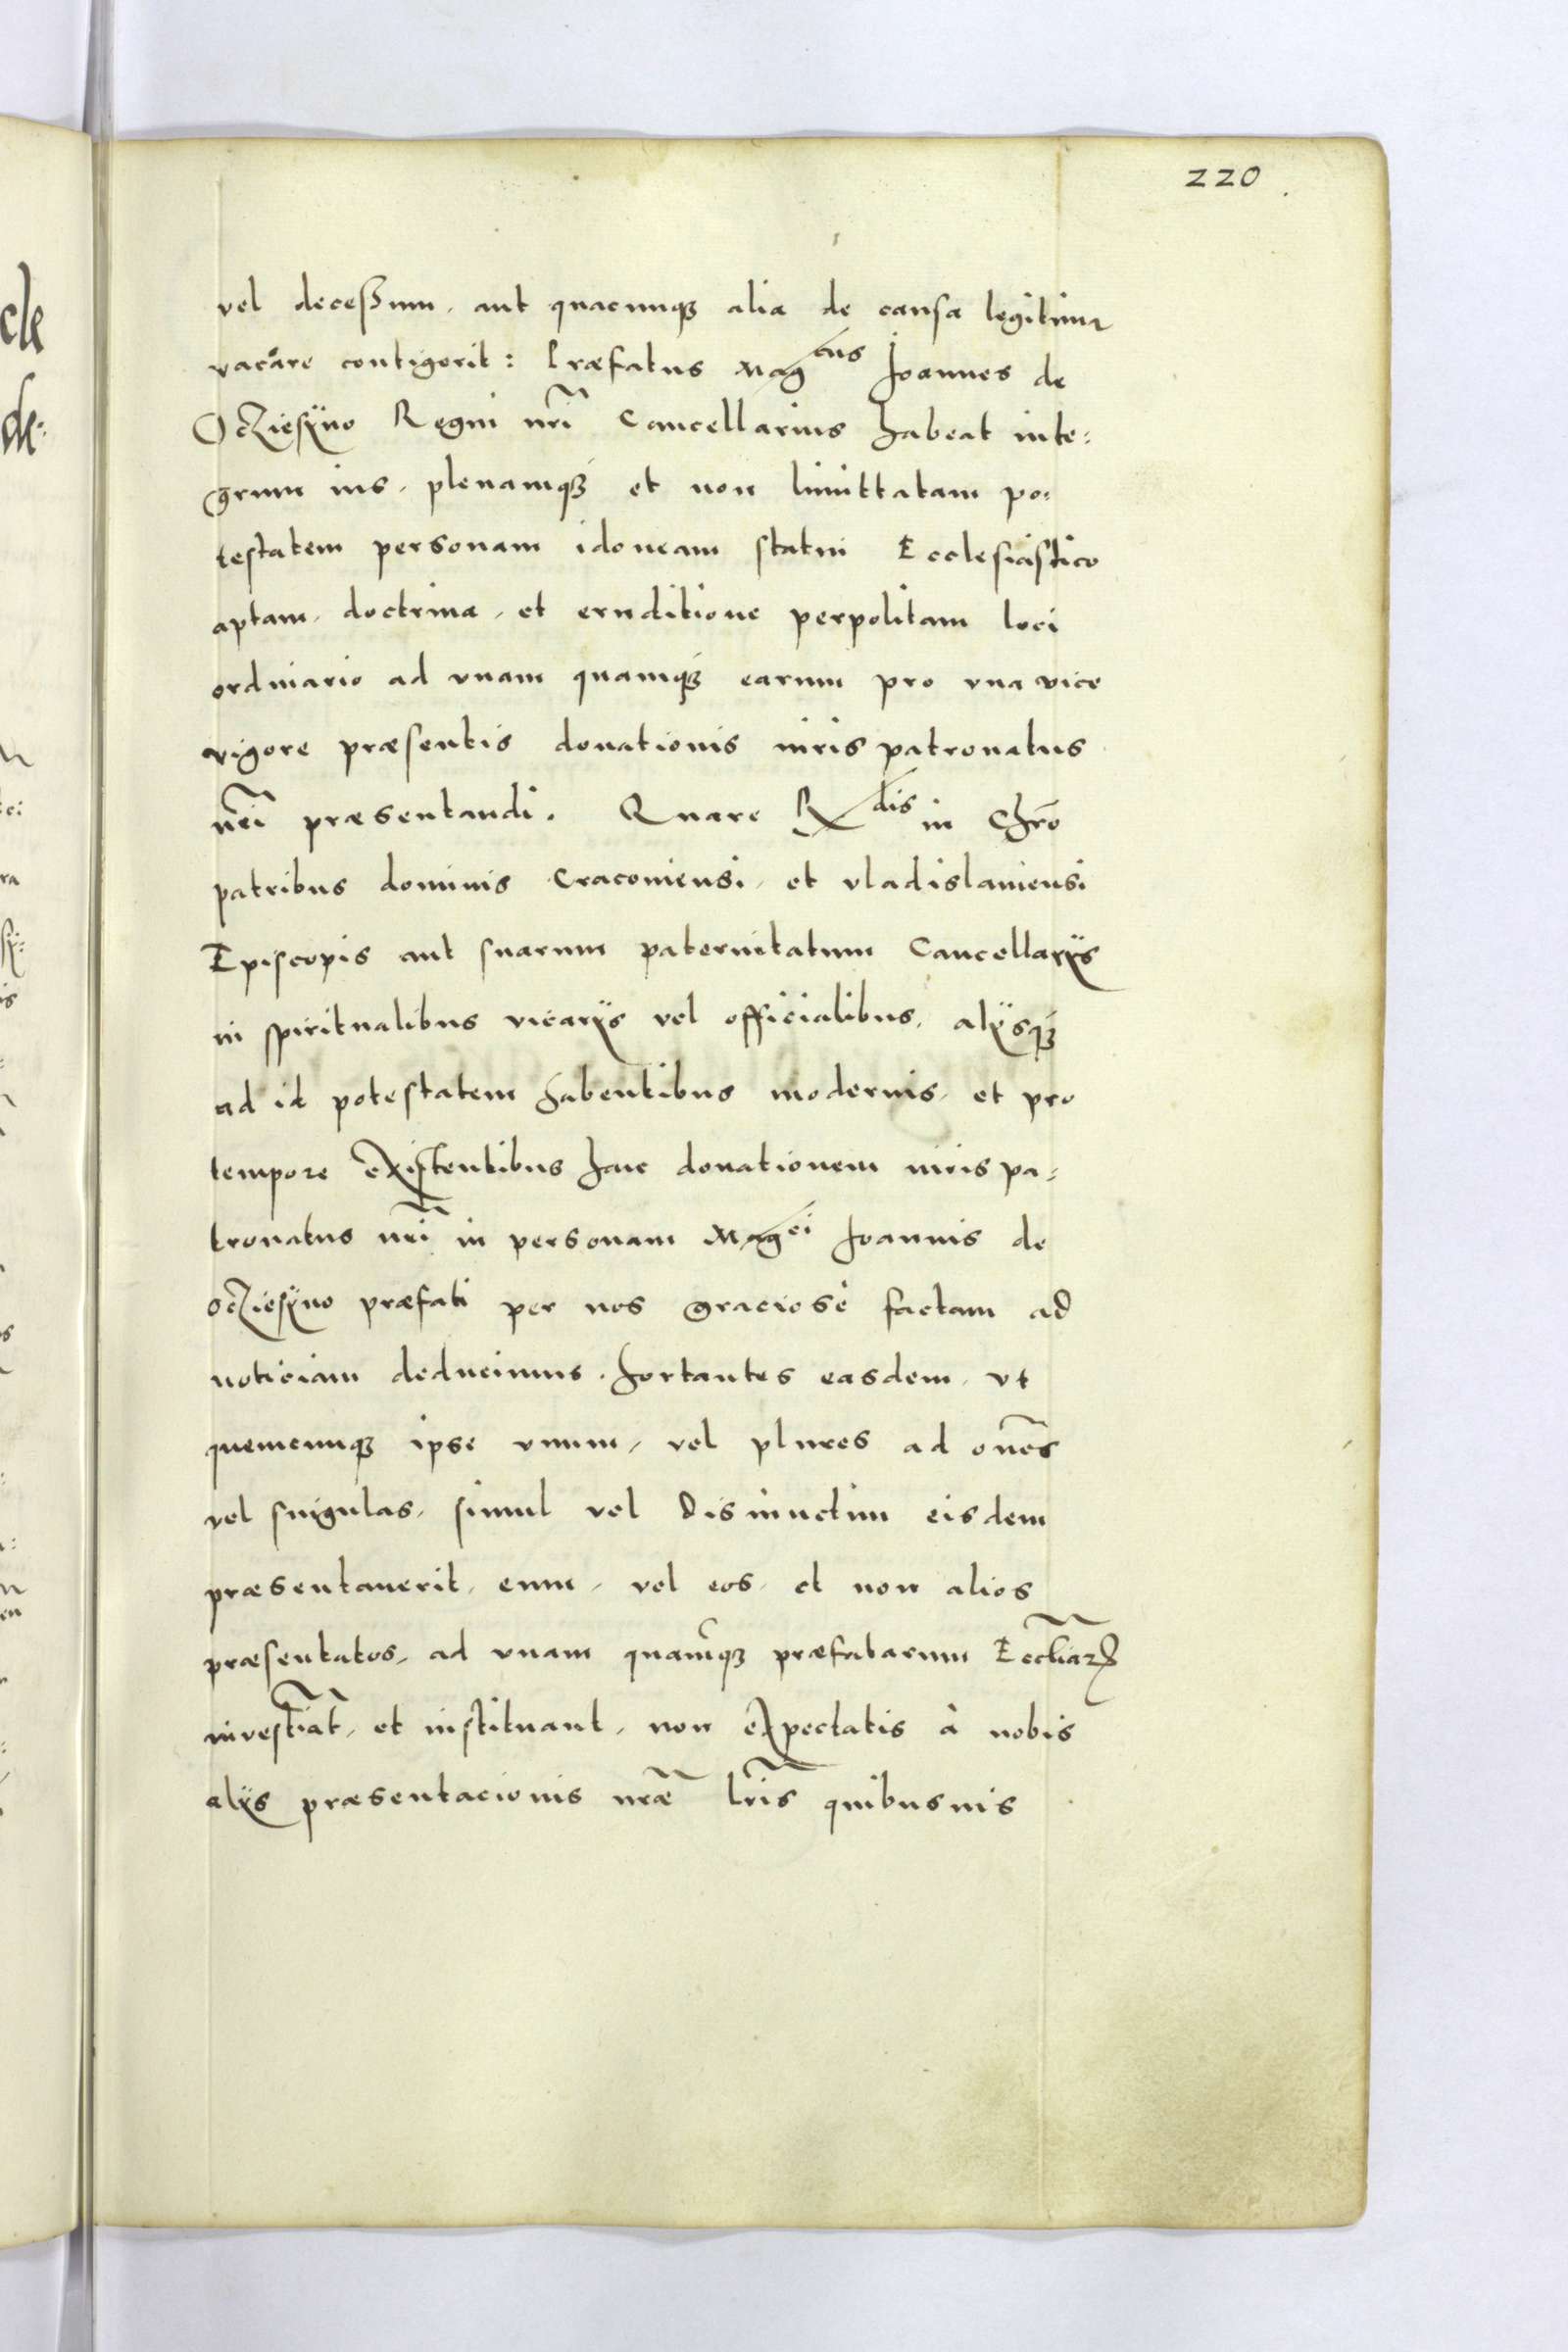 220
vel decessum, aut quacunq₃ alia de causa legitima
vacare contigerit: Præfatus Mag^cus Joannes de
Ocziesÿno Regni nr̃i Cancellarius habeat inte:
grum ius, plenamq₃ et non limittatam po:
testatem personam idoneam statui Ecclesiastico
aptam, doctrina, et eruditione perpolitam loci
ordinario ad vnam quamq₃ earum pro vna vice
vigore præsentis donationis iuris patronatus
nr̃i præsentandi. Quare R^dis in Chr̃o
patribus dominis Cracouiensi, et vladislauiensi
Episcopis aut suarum paternitatum Cancellarÿs
in spiritualibus vicarÿs vel officialibus, alÿsq₃
ad id potestatem habentibus modernis, et pro
tempore existentibus hanc donationem iuris pa:
tronatus nr̃i in personam Mag^ci Joannis de
Ocziesÿno præfati per nos graciosè factam ad
noticiam deducimus, hortantes easdem, vt
quemcunq₃ ipse vnum, vel plures ad om̃es
vel singulas, simul vel disiunctim eisdem
præsentauerit, eum, vel eos, et non alios
præsentatos, ad vnam quamq₃ præfatarum Eccl̃iarꝝ
inuestiãt, et instituant, non expectatis à nobis
alÿs præsentacionis nr̃æ lr̃is quibusuis